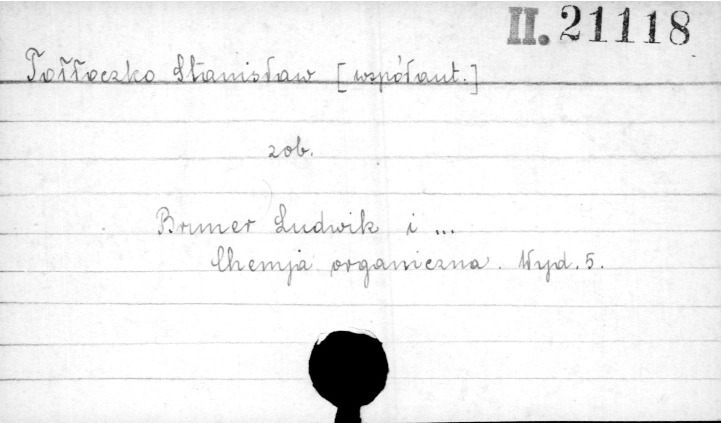 II. 21118
Tołłoczko Stanisław [współaut.]
zob.
Bruner Ludwik i ...
Chemja organiczna. Wyd. 5.